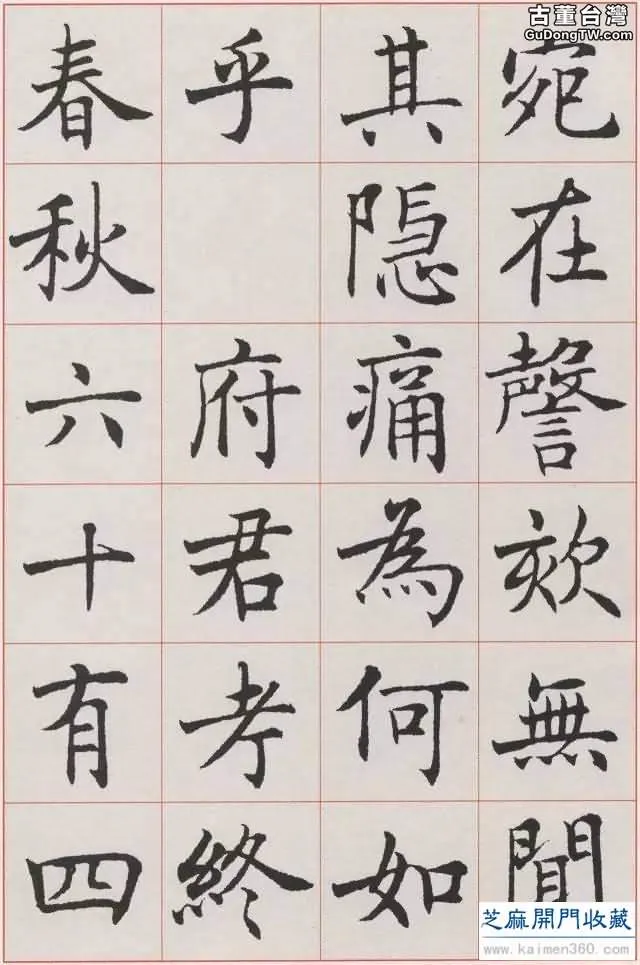 古董台灣
GuDongTW.com
宛在謦欬無聞
其隱痛為何如
乎 府君考終
春秋六十有四
芝麻開門收藏
www.kaimen360.com